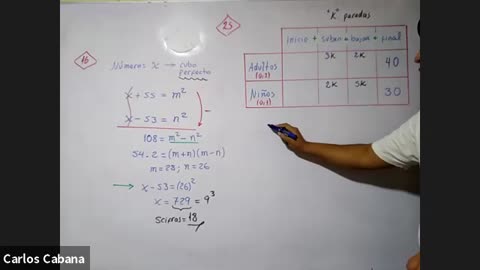 16
Número = x → cubo
perfecto
x + 55 = m²
x - 53 = n²
108 = m² - n²
54 · 2 = (m+n)(m-n)
m = 28 ; n = 26
→ x - 53 = (26)²
x = 729 = 9³
Scifras = 18
25
"K" paradas
inicio + suben - bajan = final
Adultos 3K 2K 40
Niños 2K 5K 30
Carlos Cabana